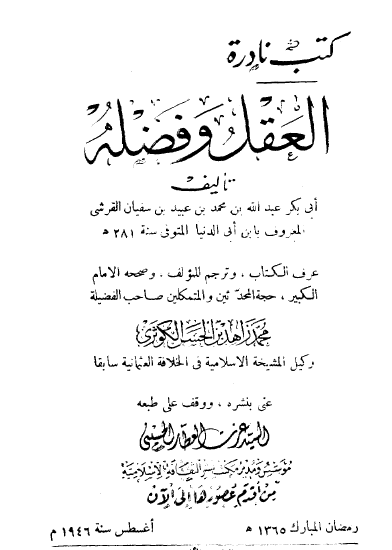 كتب نادرة
العقل وفضله
تأليف
أبى بكر عبد الله بن محمد بن عبيد بن سفيان القرشى
المعروف بابن أبى الدنيا المتوفى سنة ٢٨١ ه
عرف الكتاب ، وترجم للمؤلف . وصححه الامام
الكبير ، حجة المحدثين والمتمكلين صاحب الفضيلة
محمد زاهد بن الحسن الكوثرى
وكيل المشيخة الاسلامية فى الخلافة العثمانية سابقا
عنى بنشره ، ووقف على طبعه
السيد عزت العطار الحسينى
مؤسس ومدير مكتب نشر الثقافة الإسلامية
من أقدم عصورها إلى الآن
رمضان المبارك ١٣٦٥ ه أغسطس سنة ١٩٤٦ م